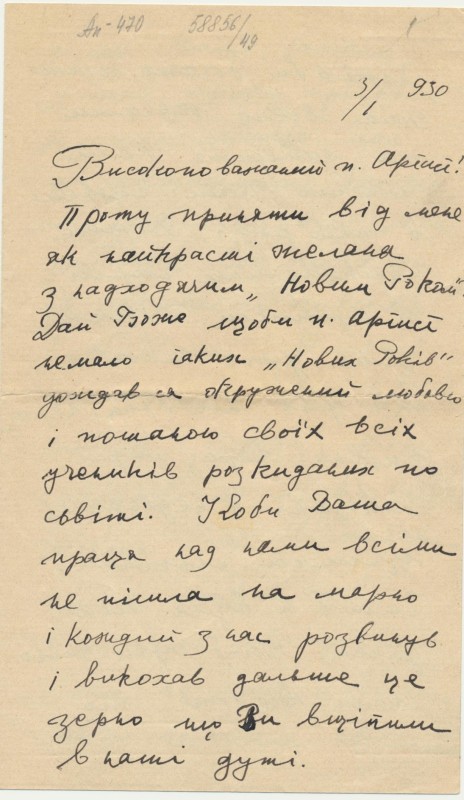 Ап-470 58856/49
3/I 930
Високоповажаний п. Артист!
Прошу приняти від мене
як найкрасші желаня
з надходячим „Новим Роком"
Дай Боже щоби п. Артист
немало таких „Нових Років"
дождав ся окружений любовю
і пошаною своїх всіх
учеників розкиданих по
сьвіті. Коби Ваша
праця над нами всіми
не пішла на марно
і кождий з нас розвинув
і викохав дальше це
зерно що Ви вщіпили
в наші душі.